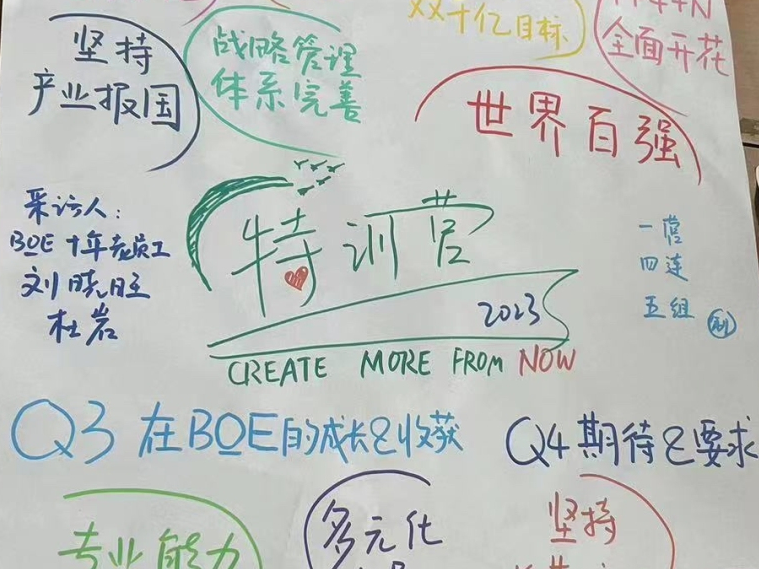 XX十亿目标
1+4+N
坚持
产业报国
战略管理
体系完善
全面开花
世界百强
采访人:
BOE 十年老员工
刘晓旺
杜岩
特训营
2023
CREATE MORE FROM NOW
一营
四连
五组
Q3 在BOE的成长&收获
Q4 期待&要求
专业能力
多元化
坚持